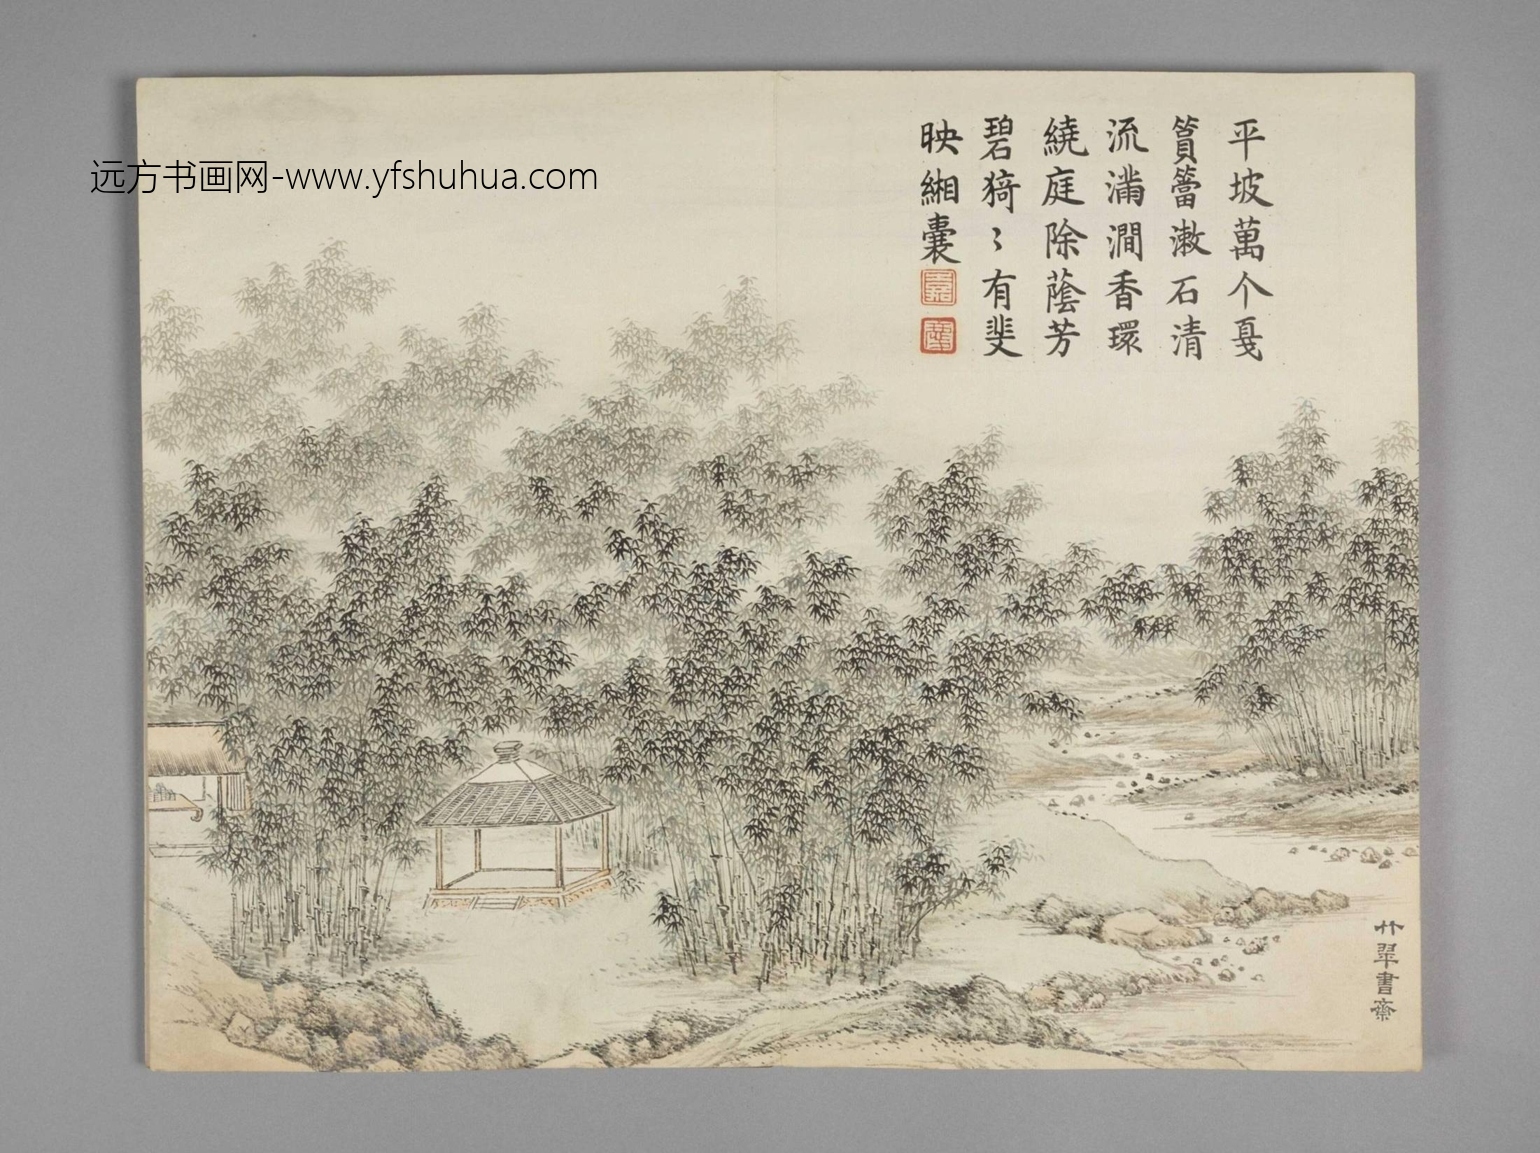 远方书画网-www.yfshuhua.com
平坡萬个戛
篔簹漱石清
流滿澗香環
繞庭除蔭芳
碧猗〻有斐
映緗囊
竹翠書齋